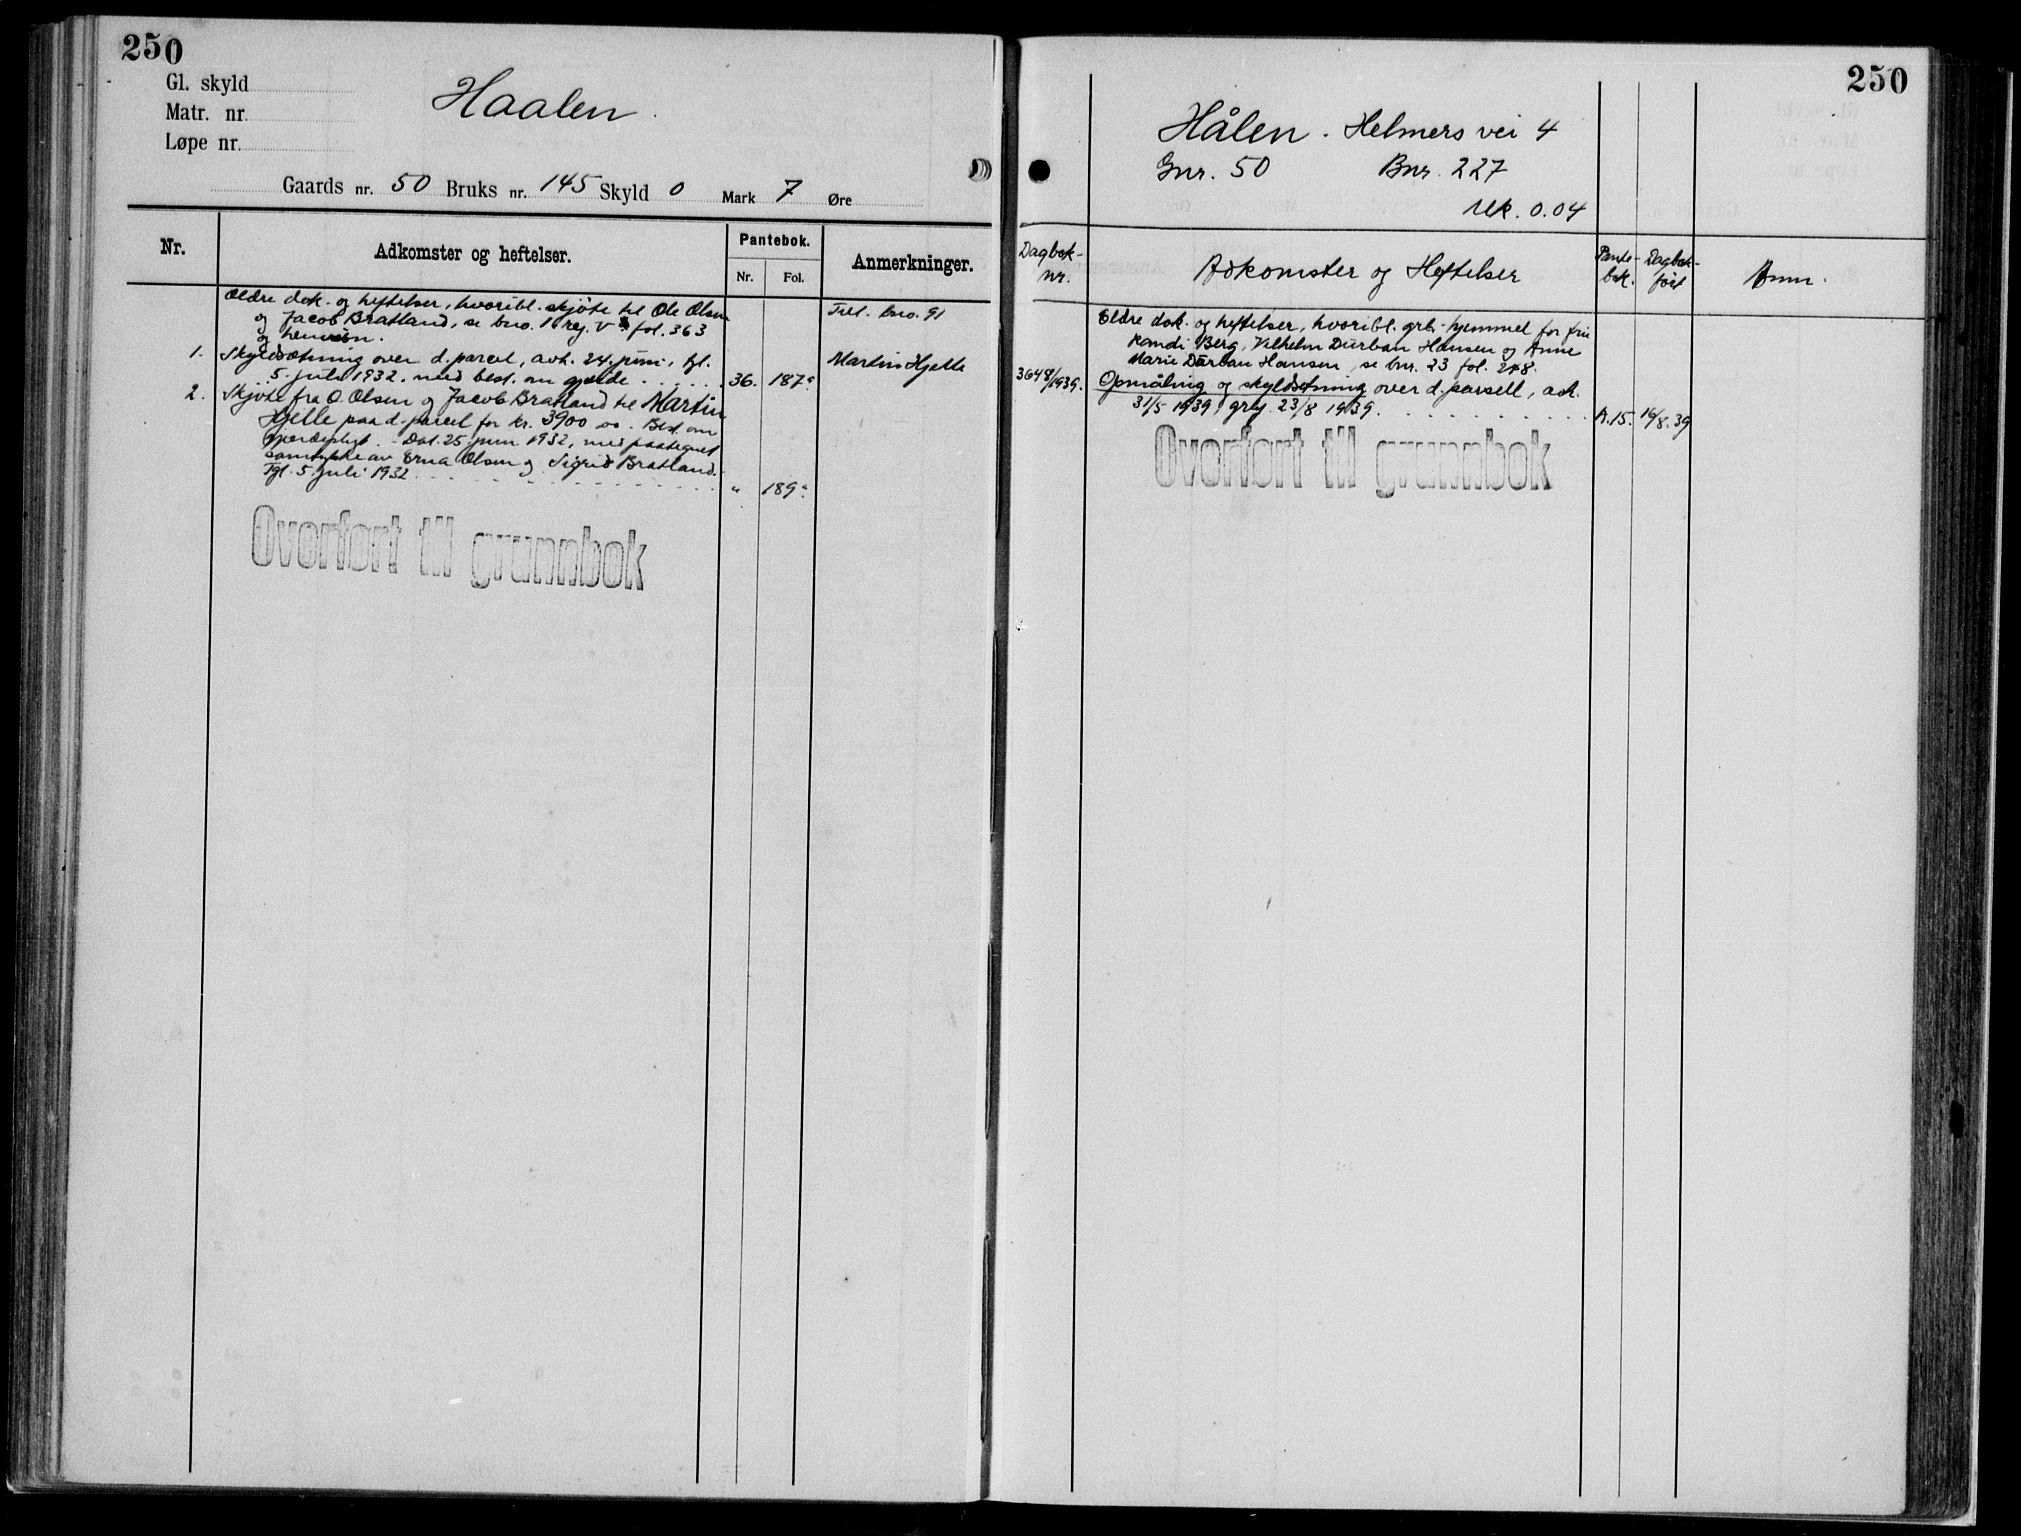 250
Gl. skyld
Matr. nr.
Løpe nr.
Haalen
Gaards nr. 50 Bruks nr. 145 Skyld 0 Mark 7 Øre
Nr.
Adkomster og heftelser.
Pantebok.
Nr. Fol.
Anmerkninger.
Ældre dok. og heftelser, hvoribl. skjøte til Ole Olsen
og Jacob Bratland, se bno. 1 reg. V fol. 363
og
Till. bno. 91
1. Skyldsætning over d. parcel, avh. 24. juni, tgl.
5. juli 1932, med best. om gjerde . . . . . 36. 187
Martin Hjelle
2. Skjøte fra O. Olsen og Jacob Bratland til Martin
Hjelle paa d. parcel for kr. 3900 00. Best. om
gjerdepligt. Dat. 25. juni 1932, med paategnet
samtykke av Erna Olsen og Sigrid Bratland.
Tgl. 5. juli 1932 . . . . . . . . " 189
Overført til grunnbok
250
Hålen. Helmers vei 4
Gnr. 50 Bnr. 227
Mk. 0.04
Dagbok-
nr.
Adkomster og Heftelser
Pante-
bok.
Dagbok-
ført
Anm.
Eldre dok. og heftelser, hvoribl. grb. hjemmel for fru
Randi Berg, Vilhelm Durban Hansen og Anne
Marie Durban Hansen, se bnr. 23 fol. 248.
3648/1939. Opmåling og skyldsetning over d. parsell, avh.
31/5 1939, grlg. 23/8 1939. . . . . . . . . A.15. 16/8.39
Overført til grunnbok